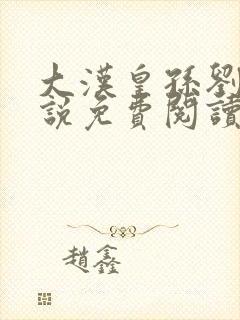 大漢皇孫劉
說免費閱讀
趙鑫